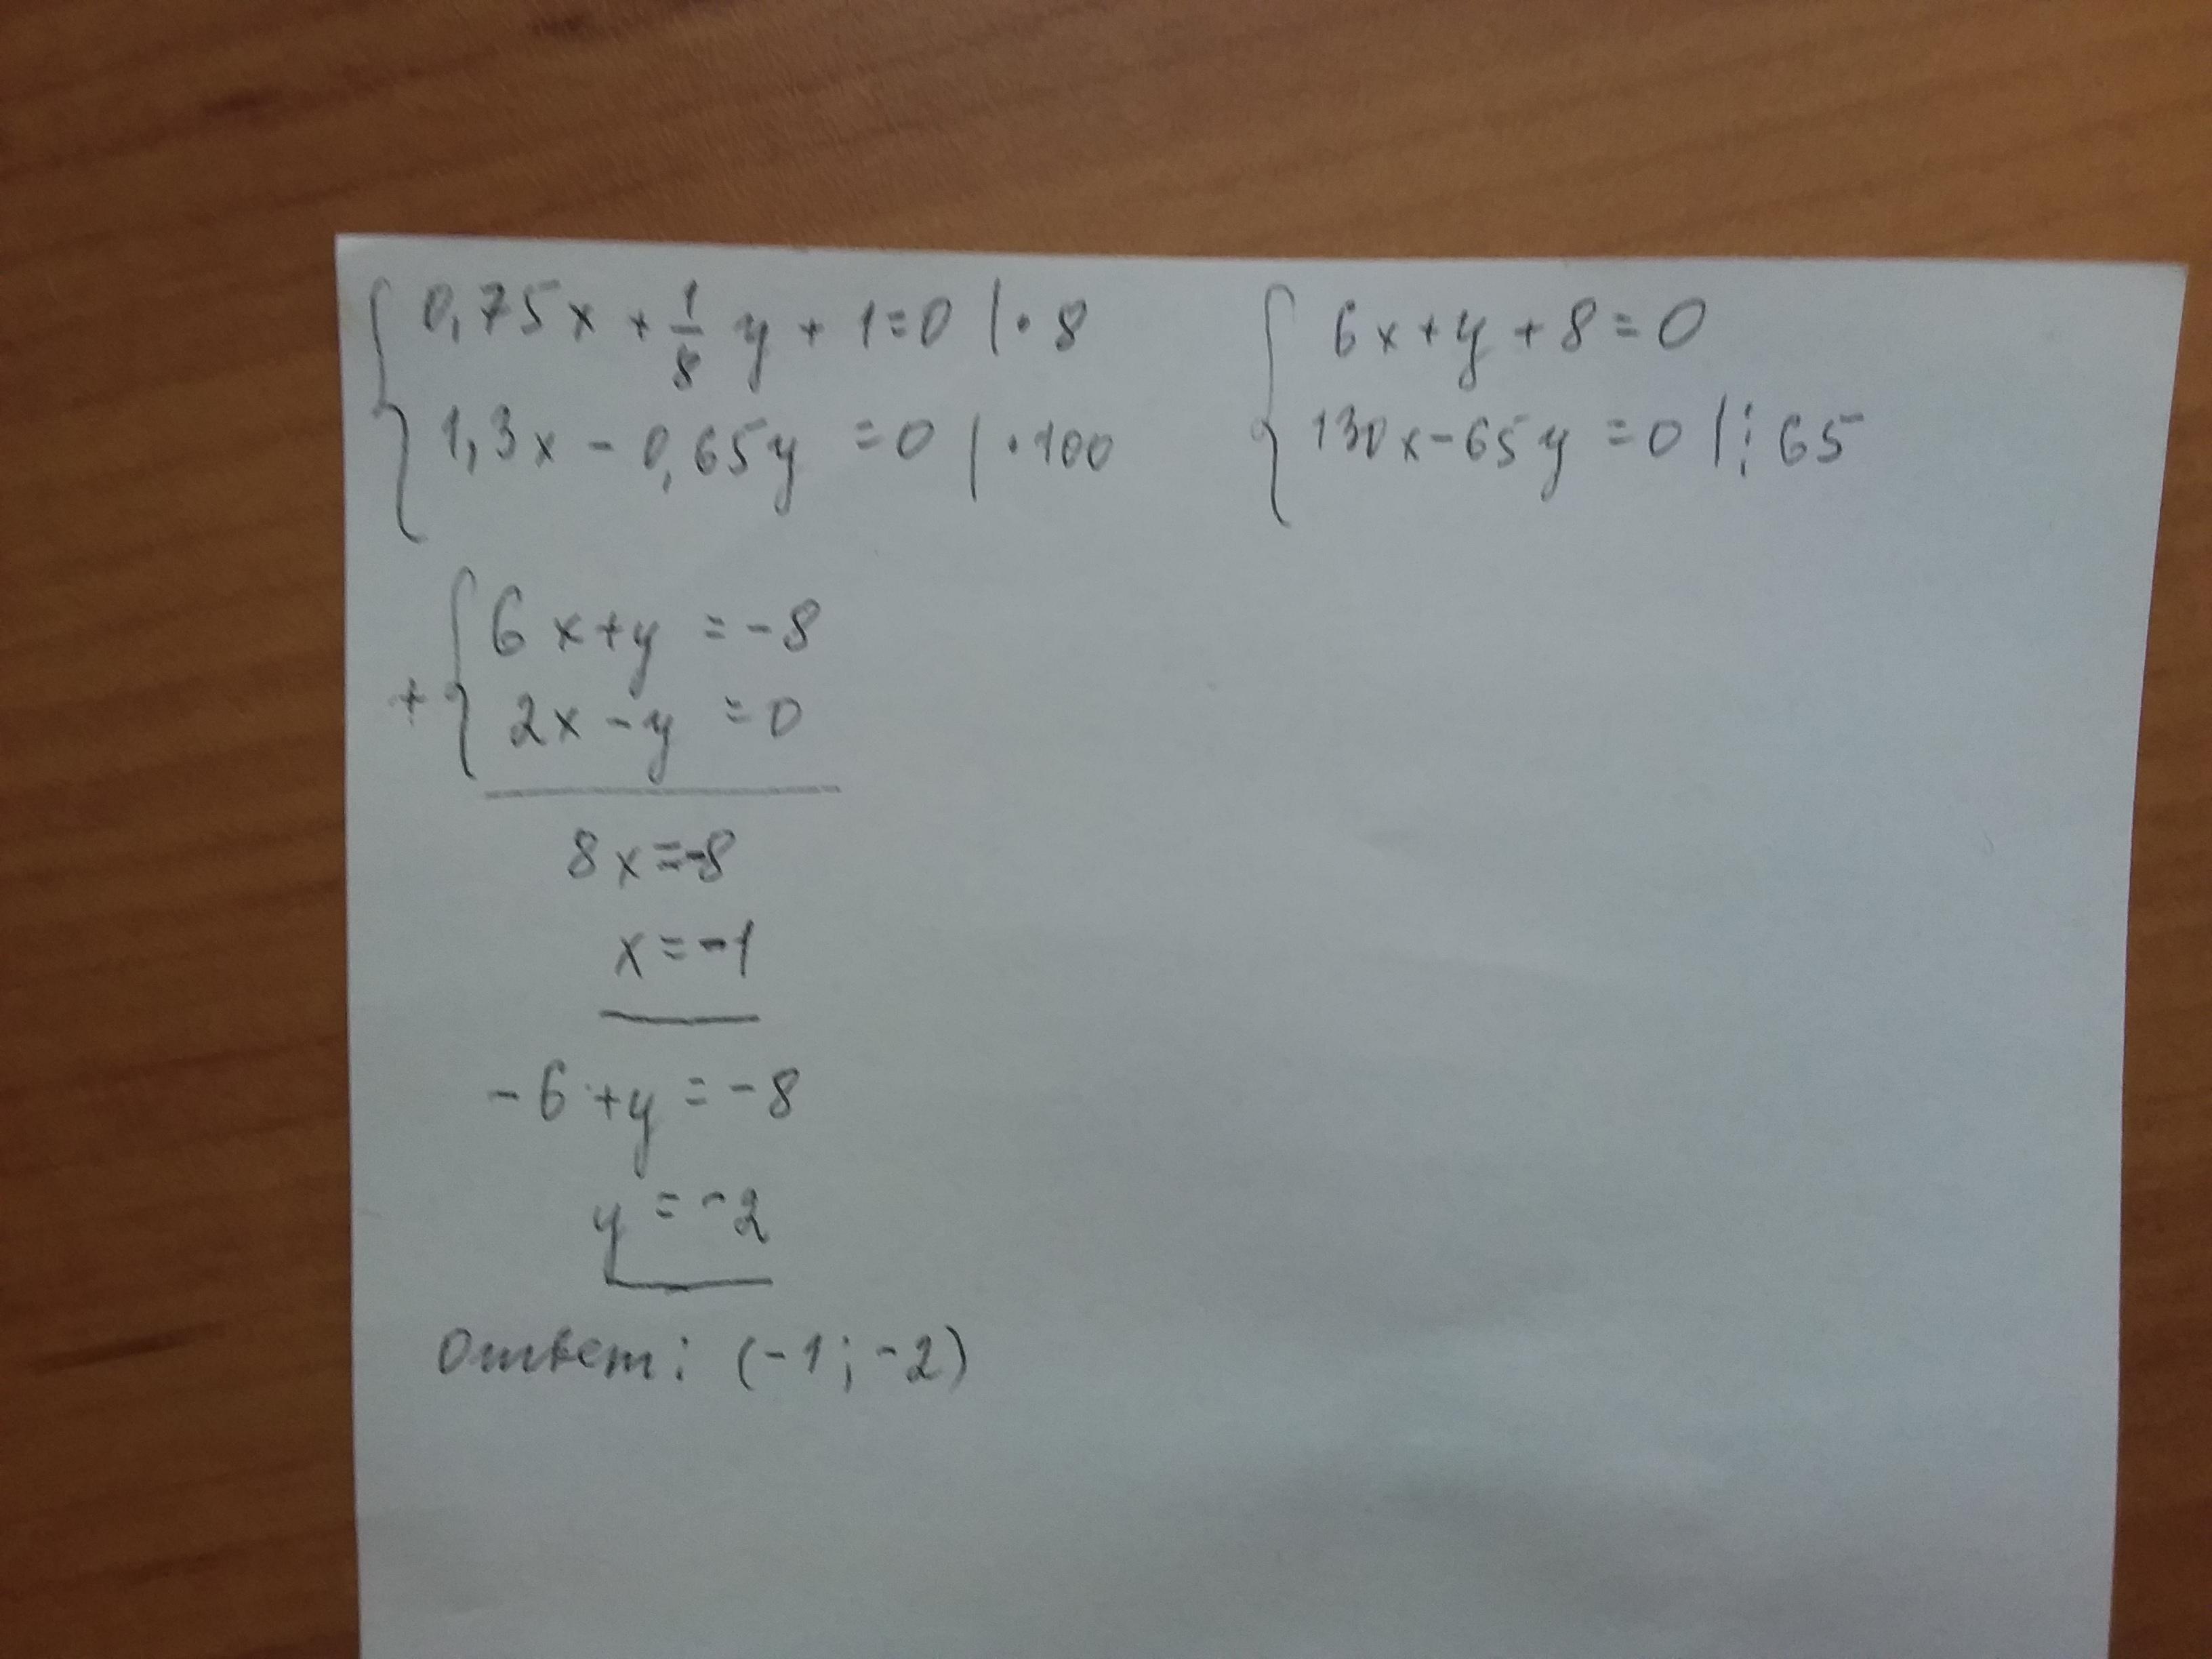 0,75x + 1/8 y + 1 = 0 | · 8
1,3x - 0,65y = 0 | · 100
6x + y + 8 = 0
130x - 65y = 0 | : 65
6x + y = -8
+
2x - y = 0
8x = -8
x = -1
-6 + y = -8
y = -2
Ответ: (-1; -2)